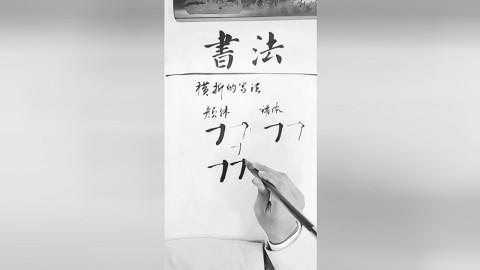 書法
横折的写法
颜体 褚体